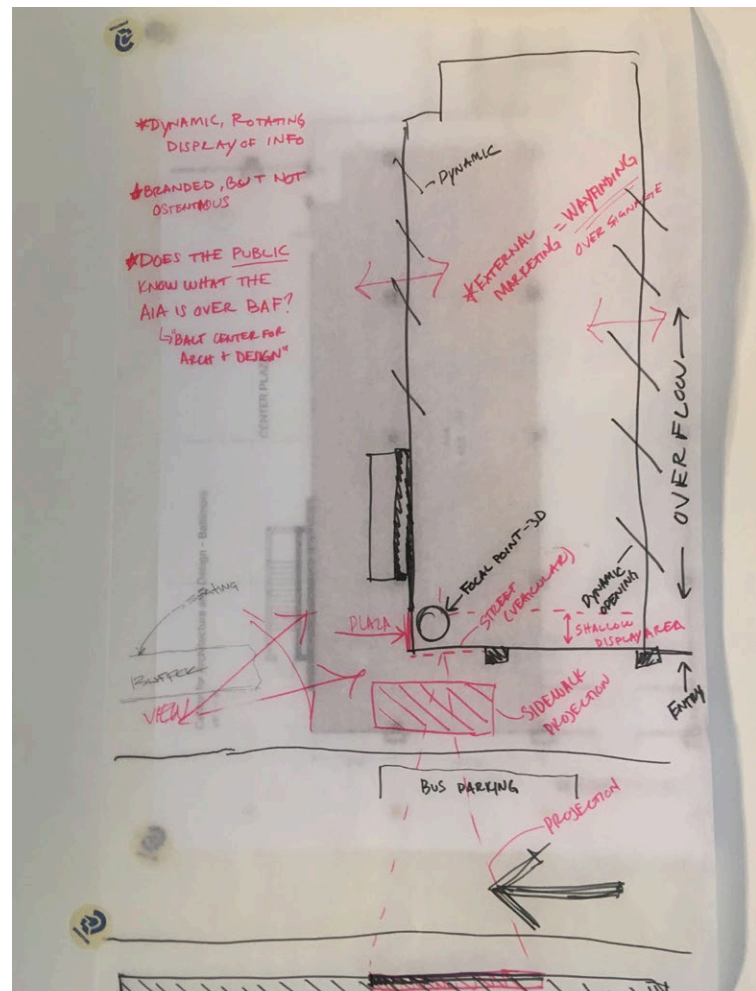 *DYNAMIC, ROTATING
DISPLAY OF INFO
*BRANDED, BUT NOT
OSTENTATIOUS
*DOES THE PUBLIC
KNOW WHAT THE
AIA IS OVER BAF?
"BALT CENTER FOR
ARCH + DESIGN"
DYNAMIC
*EXTERNAL
MARKETING = WAYFINDING
OVER SIGNAGE
OVERFLOW
CENTER PLAZA
FOCAL POINT-3D
STREET (VEHICULAR)
DYNAMIC
OPENING
SHALLOW
DISPLAY AREA
PLAZA
SEATING
BUFFER
VIEW
ENTRY
SIDEWALK
PROJECTION
BUS PARKING
PROJECTION